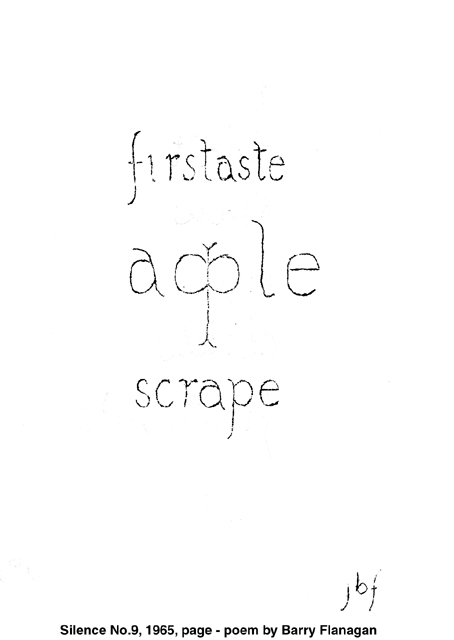 firstaste
apple
scrape
jbf
Silence No.9, 1965, page - poem by Barry Flanagan